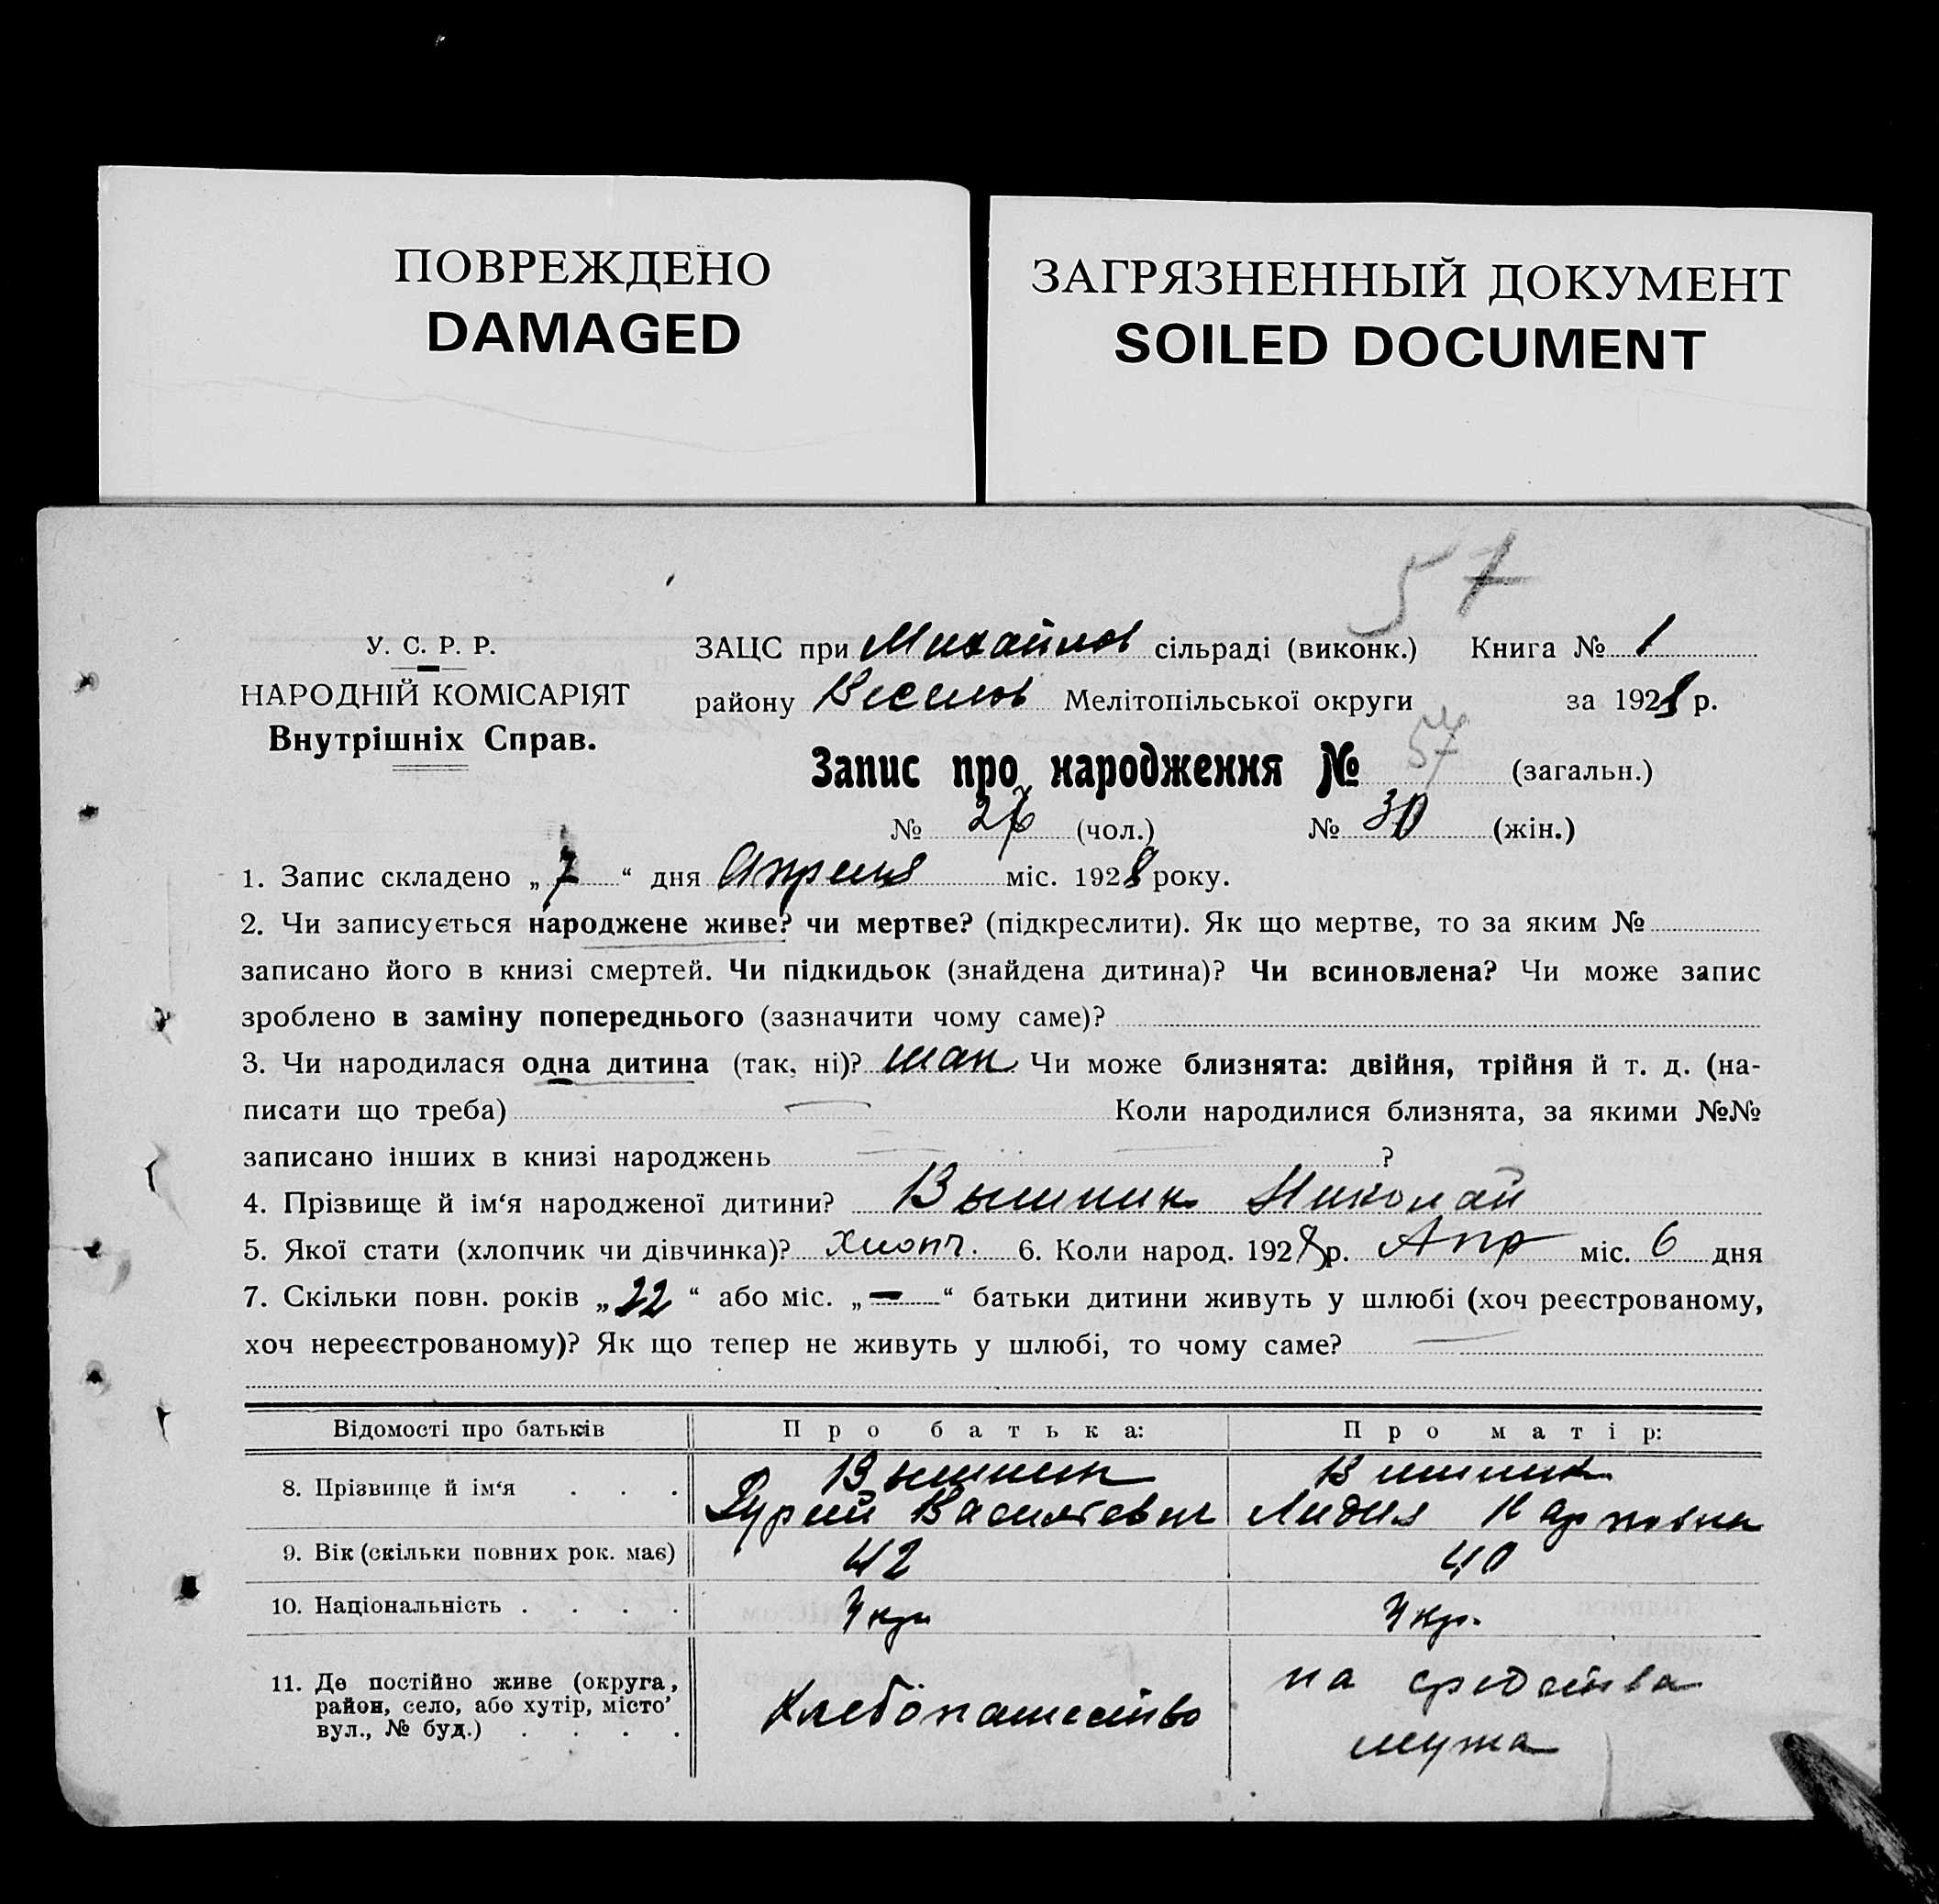 ПОВРЕЖДЕНО
DAMAGED
ЗАГРЯЗНЕННЫЙ ДОКУМЕНТ
SOILED DOCUMENT
57
У. С. Р. Р.
НАРОДНІЙ КОМІСАРІЯТ
Внутрішніх Справ.
ЗАЦС при Михайлов сільраді (виконк.) Книга № 1
району Веселов Мелітопільської округи за 1928 р.
Запис про народження № 57 (загальн.)
№ (чол.) № 30 (жін.)
1. Запис складено „ 7 “ дня Апреля міс. 1928 року.
2. Чи записується народжене живе? чи мертве? (підкреслити). Як що мертве, то за яким №
записано його в книзі смертей. Чи підкидьок (знайдена дитина)? Чи всиновлена? Чи може запис
зроблено в заміну попереднього (зазначити чому саме)?
3. Чи народилася одна дитина (так, ні)? так Чи може близнята: двійня, трійня й т. д. (на-
писати що треба) — Коли народилися близнята, за якими №№
записано інших в книзі народжень — — ?
4. Прізвище й ім‘я народженої дитини? Вышник Николай
5. Якої стати (хлопчик чи дівчинка)? хлопч. 6. Коли народ. 1928 р. Апр міс. 6 дня
7. Скільки повн. років „ 22 “ або міс. „ — “ батьки дитини живуть у шлюбі (хоч реєстрованому,
хоч нереєстрованому)? Як що тепер не живуть у шлюбі, то чому саме? —
Відомості про батьків Про батька: Про матір:
8. Прізвище й ім‘я . . . Вышник Вишник
Гурий Васильевич Лидия Карповна
9. Вік (скільки повних рок. має) 42 40
10. Національність . . . . Укр Укр.
11. Де постійно живе (округа,
район, село, або хутір, місто’
вул., № буд.) . . . .
Хлебопашество
на средства
мужа